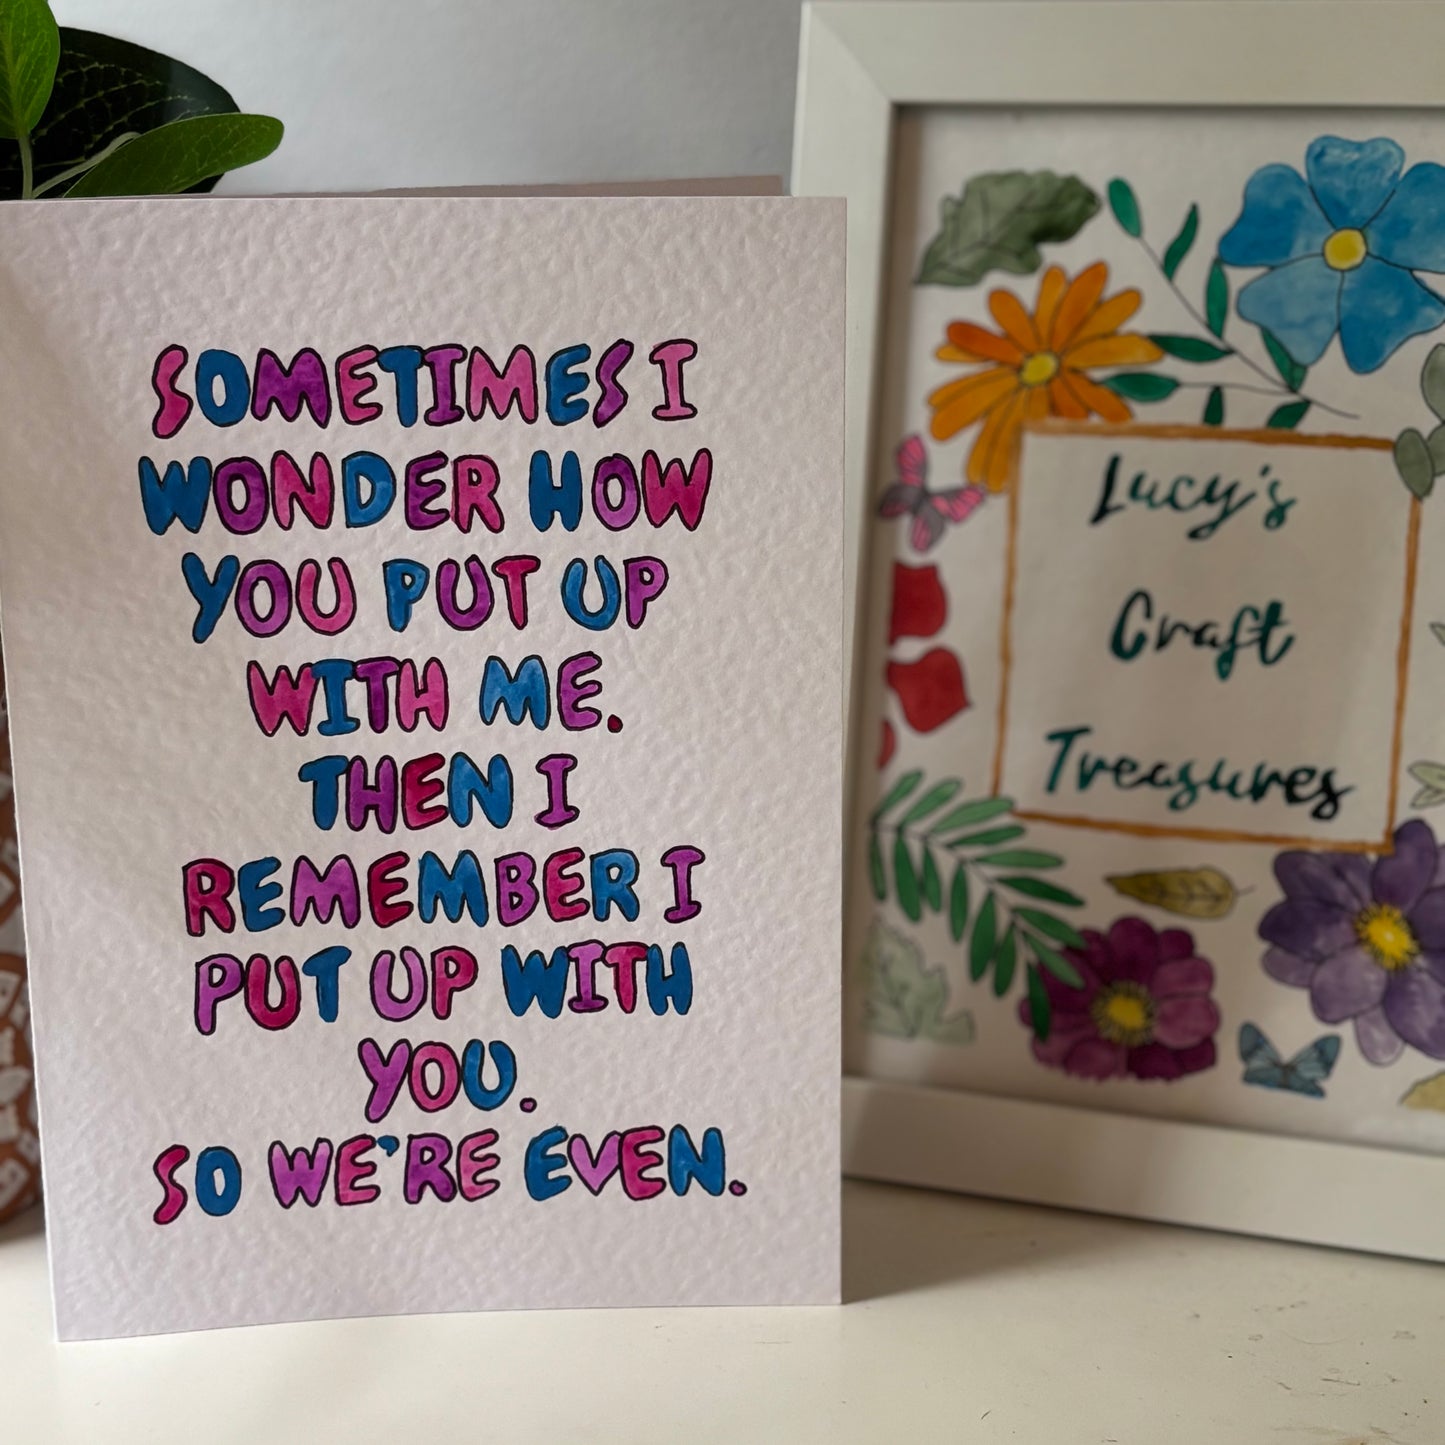 SOMETIMES I
WONDER HOW
YOU PUT UP
WITH ME.
THEN I
REMEMBER I
PUT UP WITH
YOU.
SO WE'RE EVEN.
Lucy's
Craft
Treasures